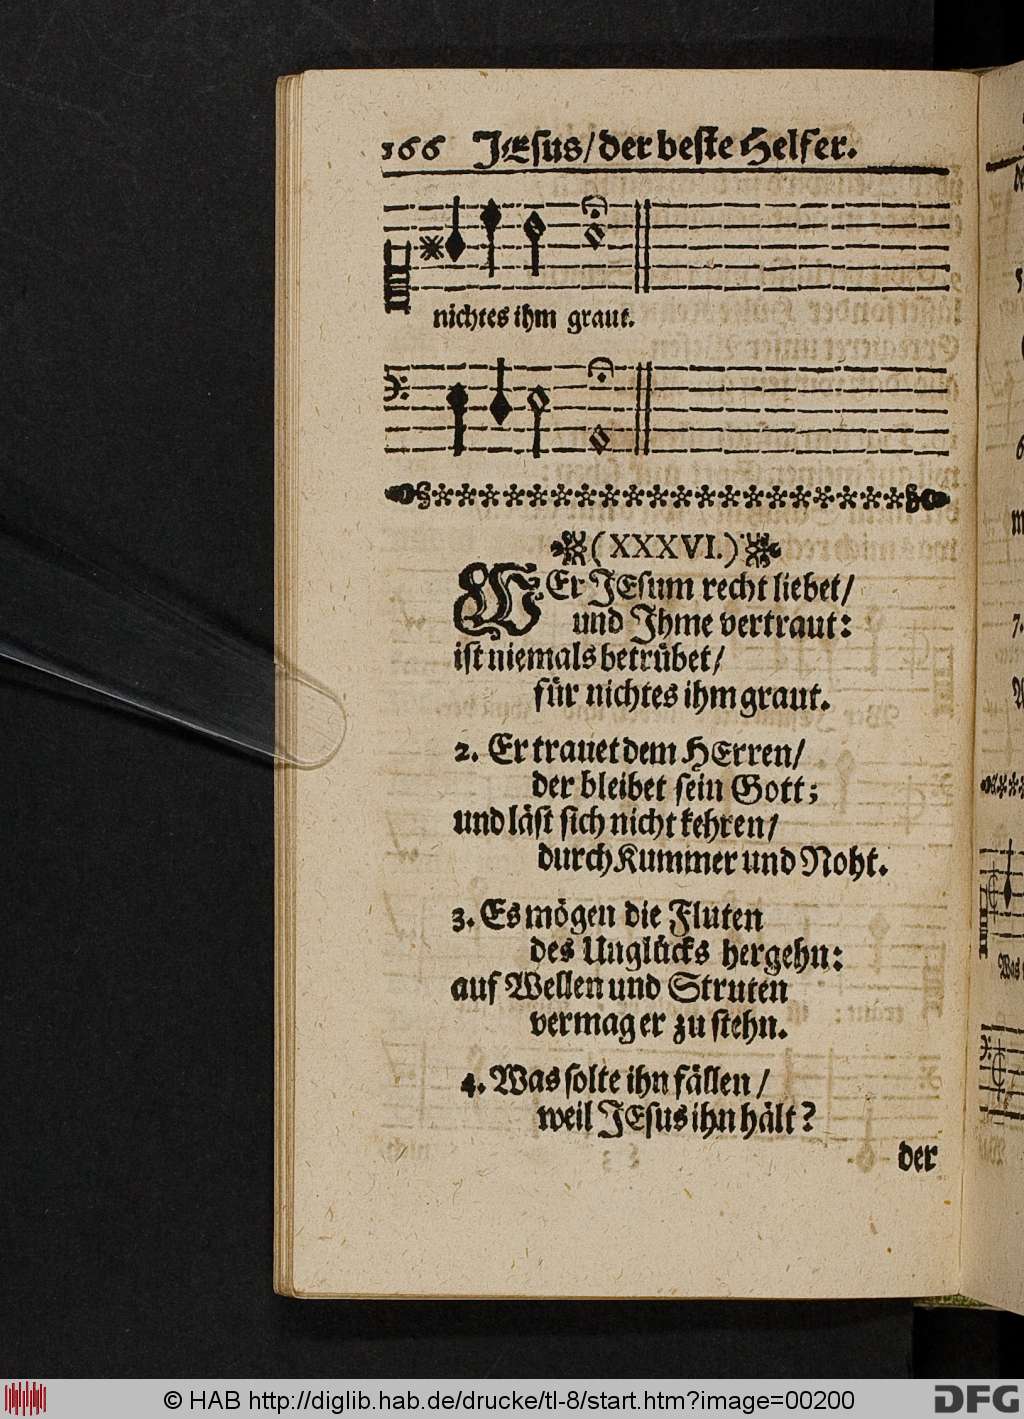 166 JEsus/ der beste Helfer.
nichtes ihm graut.
(XXXVI.)
WEr JEsum recht liebet/
und Ihme vertraut:
ist niemals betrübet/
für nichtes ihm graut.
2. Er trauet dem HErren/
der bleibet sein Gott;
und läst sich nicht kehren/
durch Kummer und Noht.
3. Es mögen die Fluten
des Unglücks hergehn:
auf Wellen und Struten
vermag er zu stehn.
4. Was solte ihn fällen /
weil JEsus ihn hält?
der
© HAB http://diglib.hab.de/drucke/tl-8/start.htm?image=00200
DFG